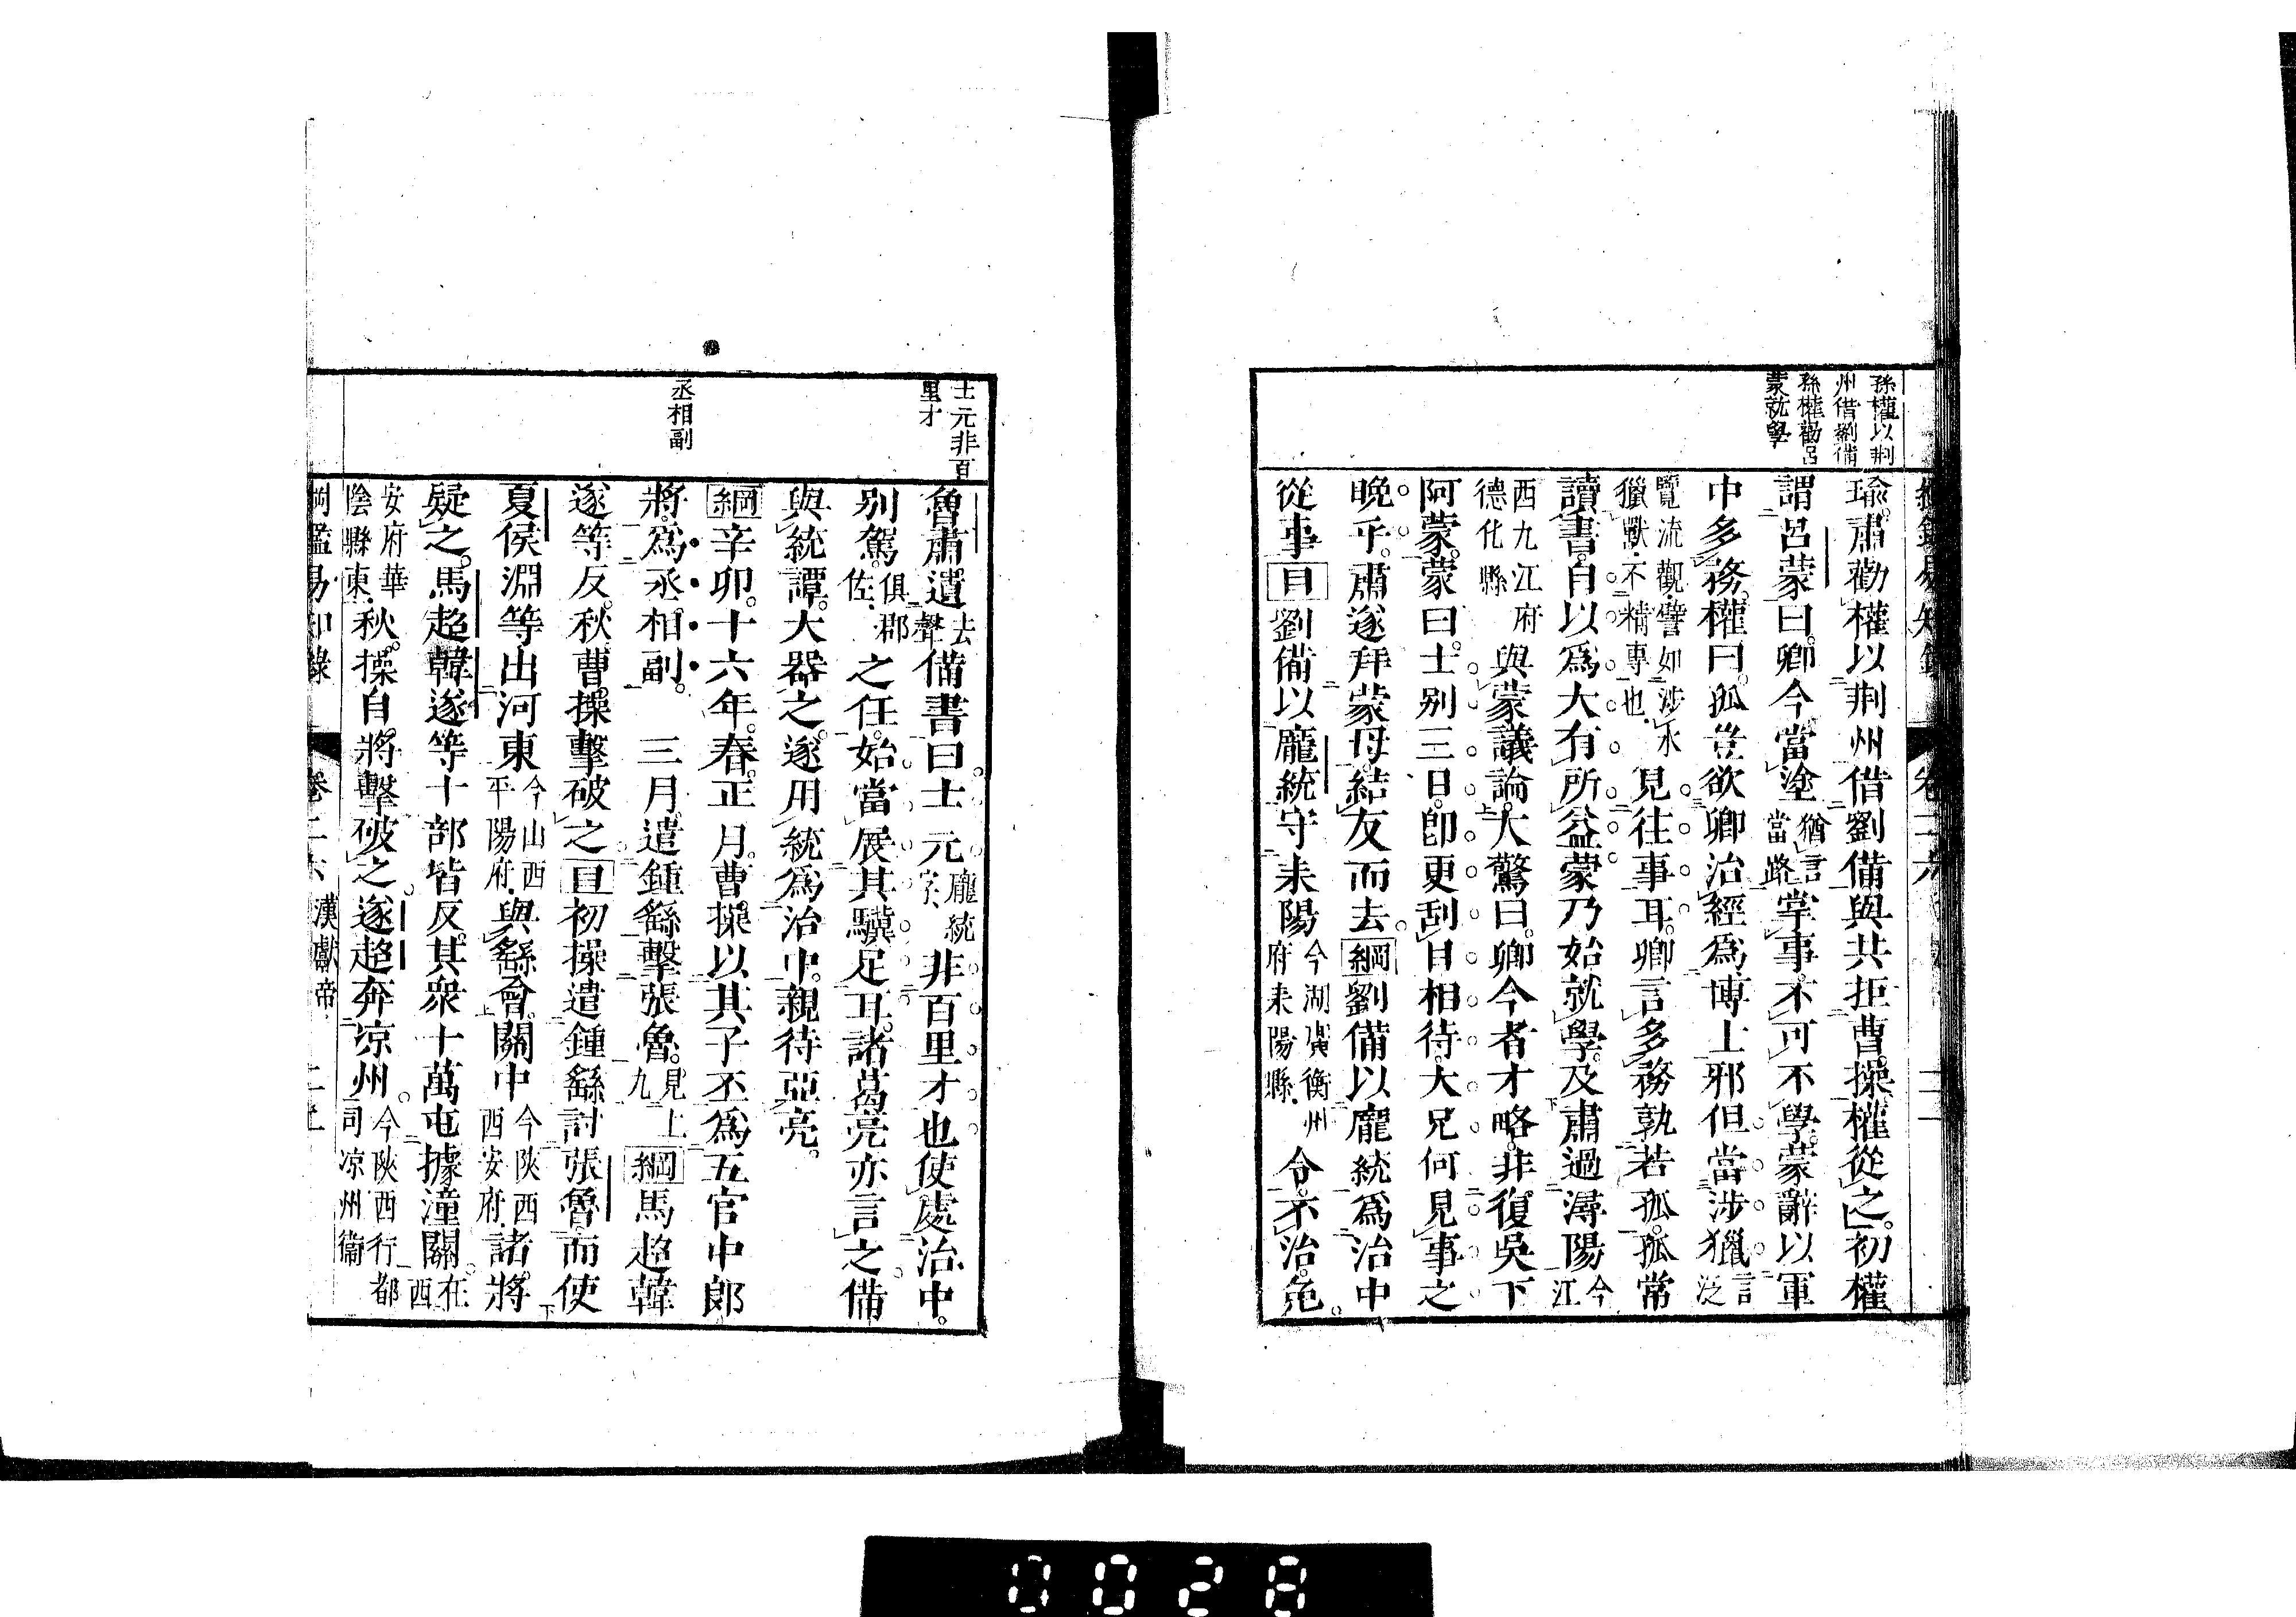 孫權以荆
州借劉備
孫權勸呂
蒙就學
瑜。肅勸權以荆州借劉備與共拒曹操權從之。初權
謂呂蒙曰。卿今當塗猶言當路掌事。不可不學。蒙辭以軍
中多務。權曰。孤豈欲卿治經爲博士邪但當涉獵言泛
覽流觀。譬如涉水獵獸。不精專也。見往事耳。卿言多務孰若孤。孤常
讀書。自以爲大有所益。蒙乃始就學。及肅過潯陽今江
西九江府德化縣與蒙議論。大驚曰。卿今者才略。非復吳下
阿蒙。蒙曰。士别三日。卽更刮目相待。大兄何見事之
晚乎。肅遂拜蒙母。結友而去。綱劉備以龐統爲治中
從事目劉備以龐統守耒陽今湖廣衡州府耒陽縣。令。不治。免。
士元非百
里才
丞相副
魯肅遺去聲備書曰士元龐統字、非百里才也使處治中。
别駕。俱郡佐、之任。始當展其驥足耳。諸葛亮亦言之備
與統譚。大器之。遂用統爲治中。親待亞亮。
綱辛卯。十六年。春。正月。曹操以其子丕爲五官中郎
將。爲丞相副。　三月。遣鍾繇擊張魯。見上九綱馬超韓
遂等反。秋。曹操擊破之目初操遣鍾繇討張魯。而使
夏侯淵等出河東今山西平陽府。與繇會。關中今陝西西安府。諸將
疑之。馬超韓遂等十部皆反。其衆十萬屯據潼關。在西
安府華陰縣東。秋。操自將擊破之。遂超奔凉州。今陝西行都司凉州衞
綱鑑易知錄　卷二六　漢獻帝